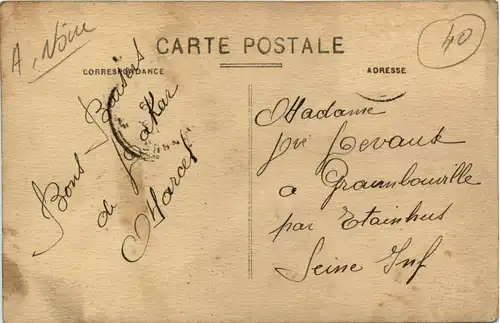 A. Noire
40
CARTE POSTALE
CORRESPONDANCE
ADRESSE
Bons Baisers
de Dakar
Marcel
Madame
Levaux
a Graimbouville
par Etainhus
Seine Inf